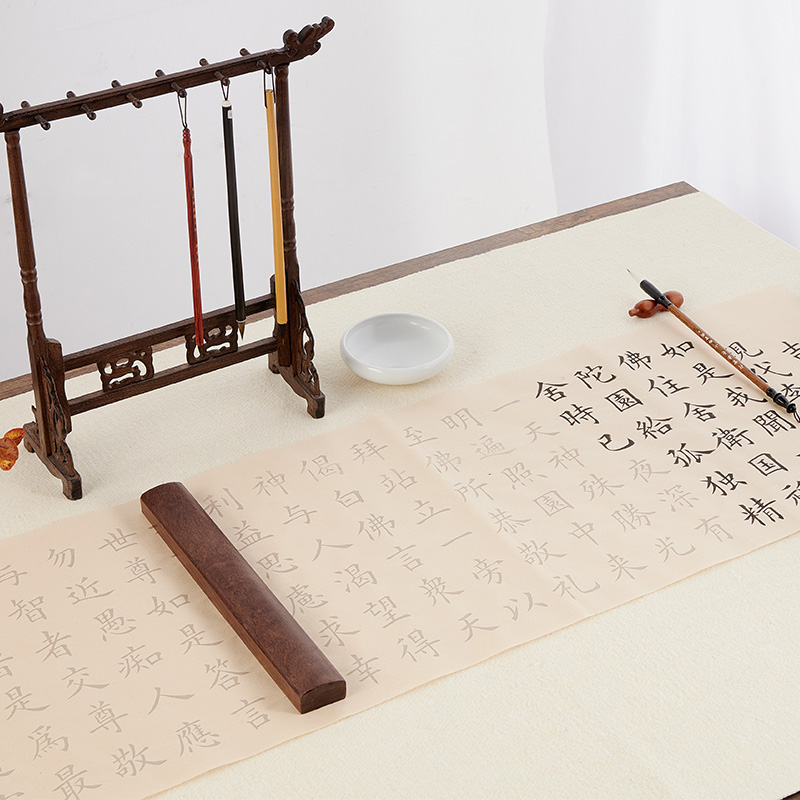 吉
現代
如是我聞
佛住舍衛国
陀園給孤独精
舍時已夜深有
一天神殊勝光
明遍照園中来
至佛所恭敬礼
拜站立一旁以
偈白佛言衆天
神与人渴望得
利益思慮求幸
世尊如是答言
勿近愚痴人應
与智者交尊敬
是為最